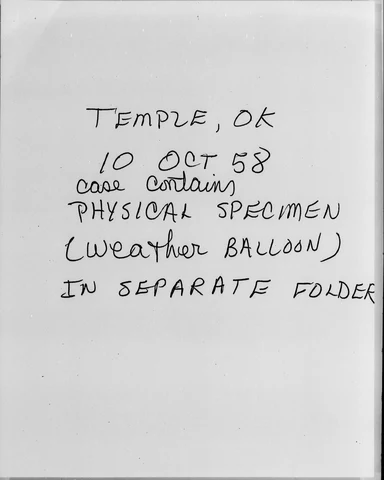 TEMPLE, OK
10 OCT 58
case contains
PHYSICAL SPECIMEN
(Weather BALLOON)
IN SEPARATE FOLDER